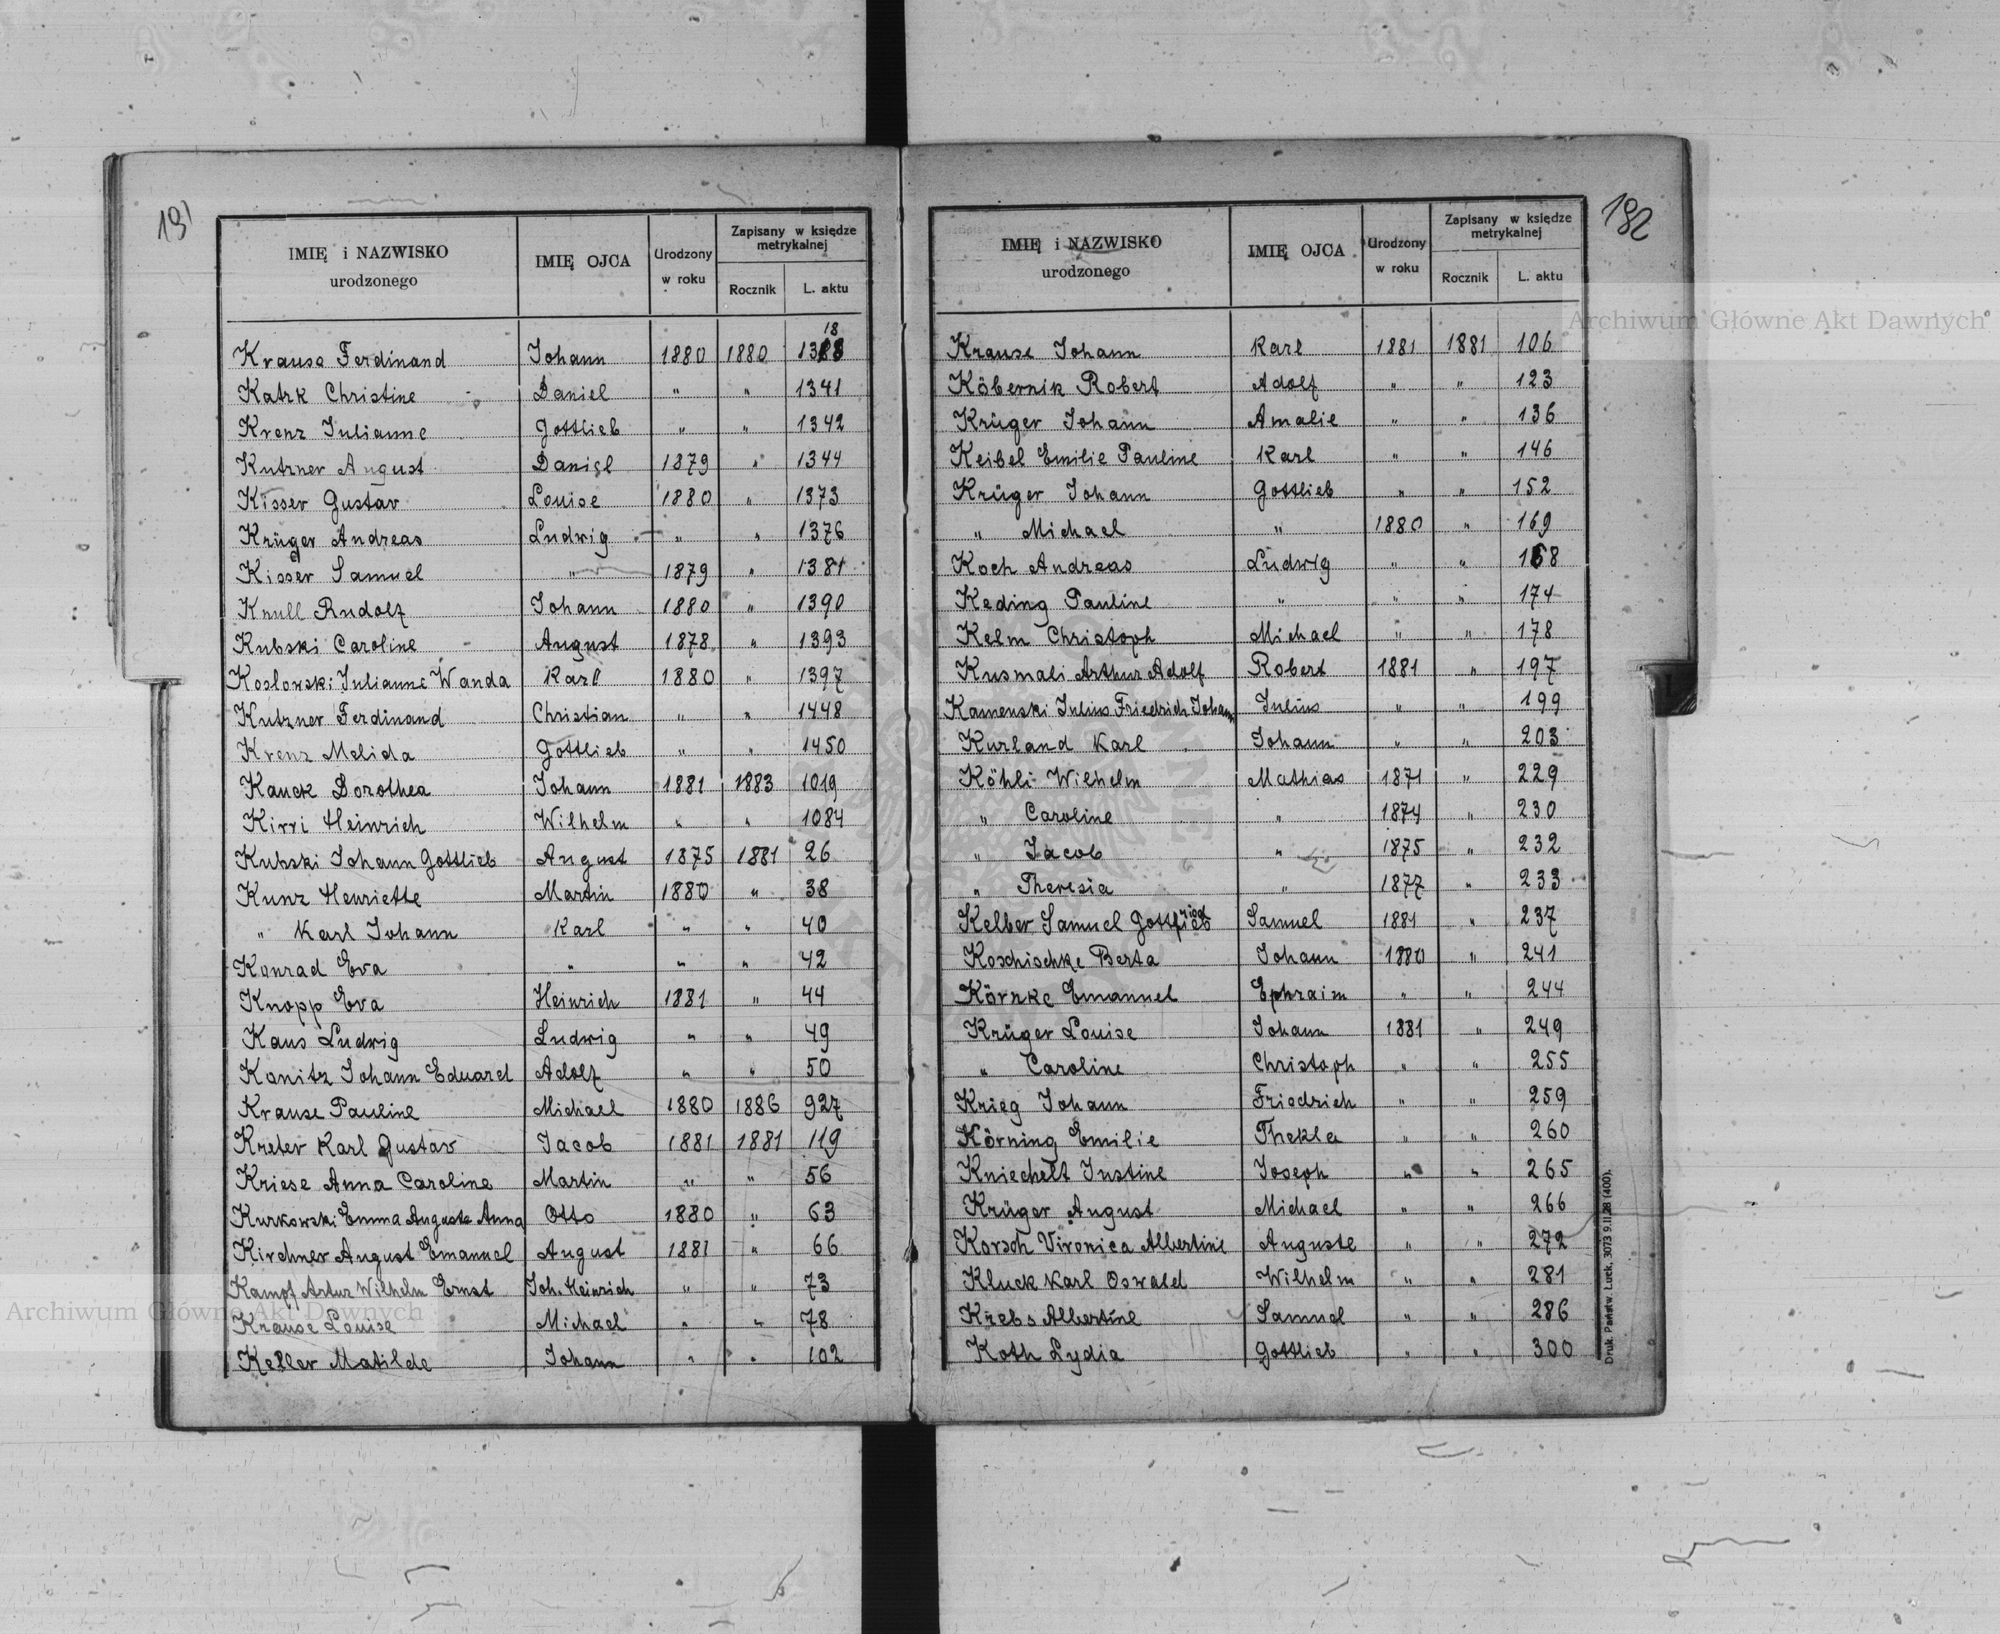 191
IMIĘ i NAZWISKO urodzonego | IMIĘ OJCA | Urodzony w roku | Zapisany w księdze metrykalnej
Rocznik | L. aktu
Krause Ferdinand | Johann | 1880 | 1880 | 1318
Katzk Christine | Daniel | " | " | 1341
Krenz Julianne | Gottlieb | " | " | 1342
Kutzner August | Daniel | 1879 | " | 1344
Kisser Gustav | Louise | 1880 | " | 1373
Krüger Andreas | Ludwig | " | " | 1376
Kisser Samuel | " | 1879 | " | 1381
Knull Rudolf | Johann | 1880 | " | 1390
Kubski Caroline | August | 1878 | " | 1393
Koslowski Julianne Wanda | Karl | 1880 | " | 1397
Kutzner Ferdinand | Christian | " | " | 1448
Krenz Melida | Gottlieb | " | " | 1450
Kauck Dorothea | Johann | 1881 | 1883 | 1019
Kirri Heinrich | Wilhelm | " | " | 1084
Kubski Johann Gottlieb | August | 1875 | 1881 | 26
Kunz Henriette | Martin | 1880 | " | 38
" Karl Johann | Karl | " | " | 40
Konrad Eva | " | " | " | 42
Knopp Eva | Heinrich | 1881 | " | 44
Kaus Ludwig | Ludwig | " | " | 49
Kanitz Johann Eduard | Adolf | " | " | 50
Krause Pauline | Michael | 1880 | 1886 | 927
Kreter Karl Gustav | Jacob | 1881 | 1881 | 119
Kriese Anna Caroline | Martin | " | " | 56
Kurkowski Emma Auguste Anna | Otto | 1880 | " | 63
Kirchner August Emanuel | August | 1881 | " | 66
Kampf Artur Wilhelm Ernst | Joh. Heinrich | " | " | 73
Krause Louise | Michael | " | " | 78
Keller Matilde | Johann | " | " | 102
192
IMIĘ i NAZWISKO urodzonego | IMIĘ OJCA | Urodzony w roku | Zapisany w księdze metrykalnej
Rocznik | L. aktu
Krause Johann | Karl | 1881 | 1881 | 106
Köbernik Robert | Adolf | " | " | 123
Krüger Johann | Amalie | " | " | 136
Keibel Emilie Pauline | Karl | " | " | 146
Krüger Johann | Gottlieb | " | " | 152
" Michael | " | 1880 | " | 169
Koch Andreas | Ludwig | " | " | 168
Keding Pauline | " | " | " | 174
Kelm Christoph | Michael | " | " | 178
Kusmali Arthur Adolf | Robert | 1881 | " | 197
Kamenski Julius Friedrich Johann | Julius | " | " | 199
Kurland Karl | Johann | " | " | 203
Köhli Wilhelm | Mathias | 1871 | " | 229
" Caroline | " | 1874 | " | 230
" Jacob | " | 1875 | " | 232
" Theresia | " | 1877 | " | 233
Kelber Samuel Gottfried | Samuel | 1881 | " | 237
Koschischke Berta | Johann | 1880 | " | 241
Körnke Emanuel | Ephraim | " | " | 244
Krüger Louise | Johann | 1881 | " | 249
" Caroline | Christoph | " | " | 255
Krieg Johann | Friedrich | " | " | 259
Körning Emilie | Thekla | " | " | 260
Kniechelt Justine | Joseph | " | " | 265
Krüger August | Michael | " | " | 266
Korsch Vironica Albertine | Auguste | " | " | 272
Kluck Karl Oswald | Wilhelm | " | " | 281
Krebs Albertine | Samuel | " | " | 286
Koth Lydia | Gottlieb | " | " | 300
Druk. Państw. Łuck, 3073 9.II.28 (400).
Archiwum Główne Akt Dawnych
Archiwum Główne Akt Dawnych